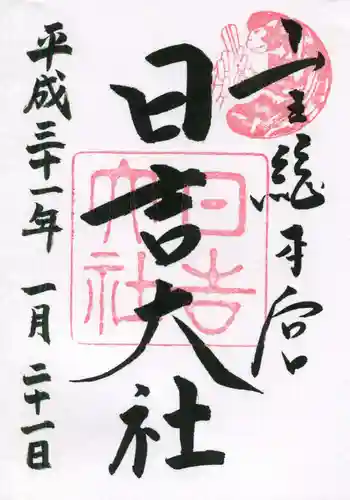 全国総本宮
日吉大社
平成三十一年 一月 二十一日
日吉
大社